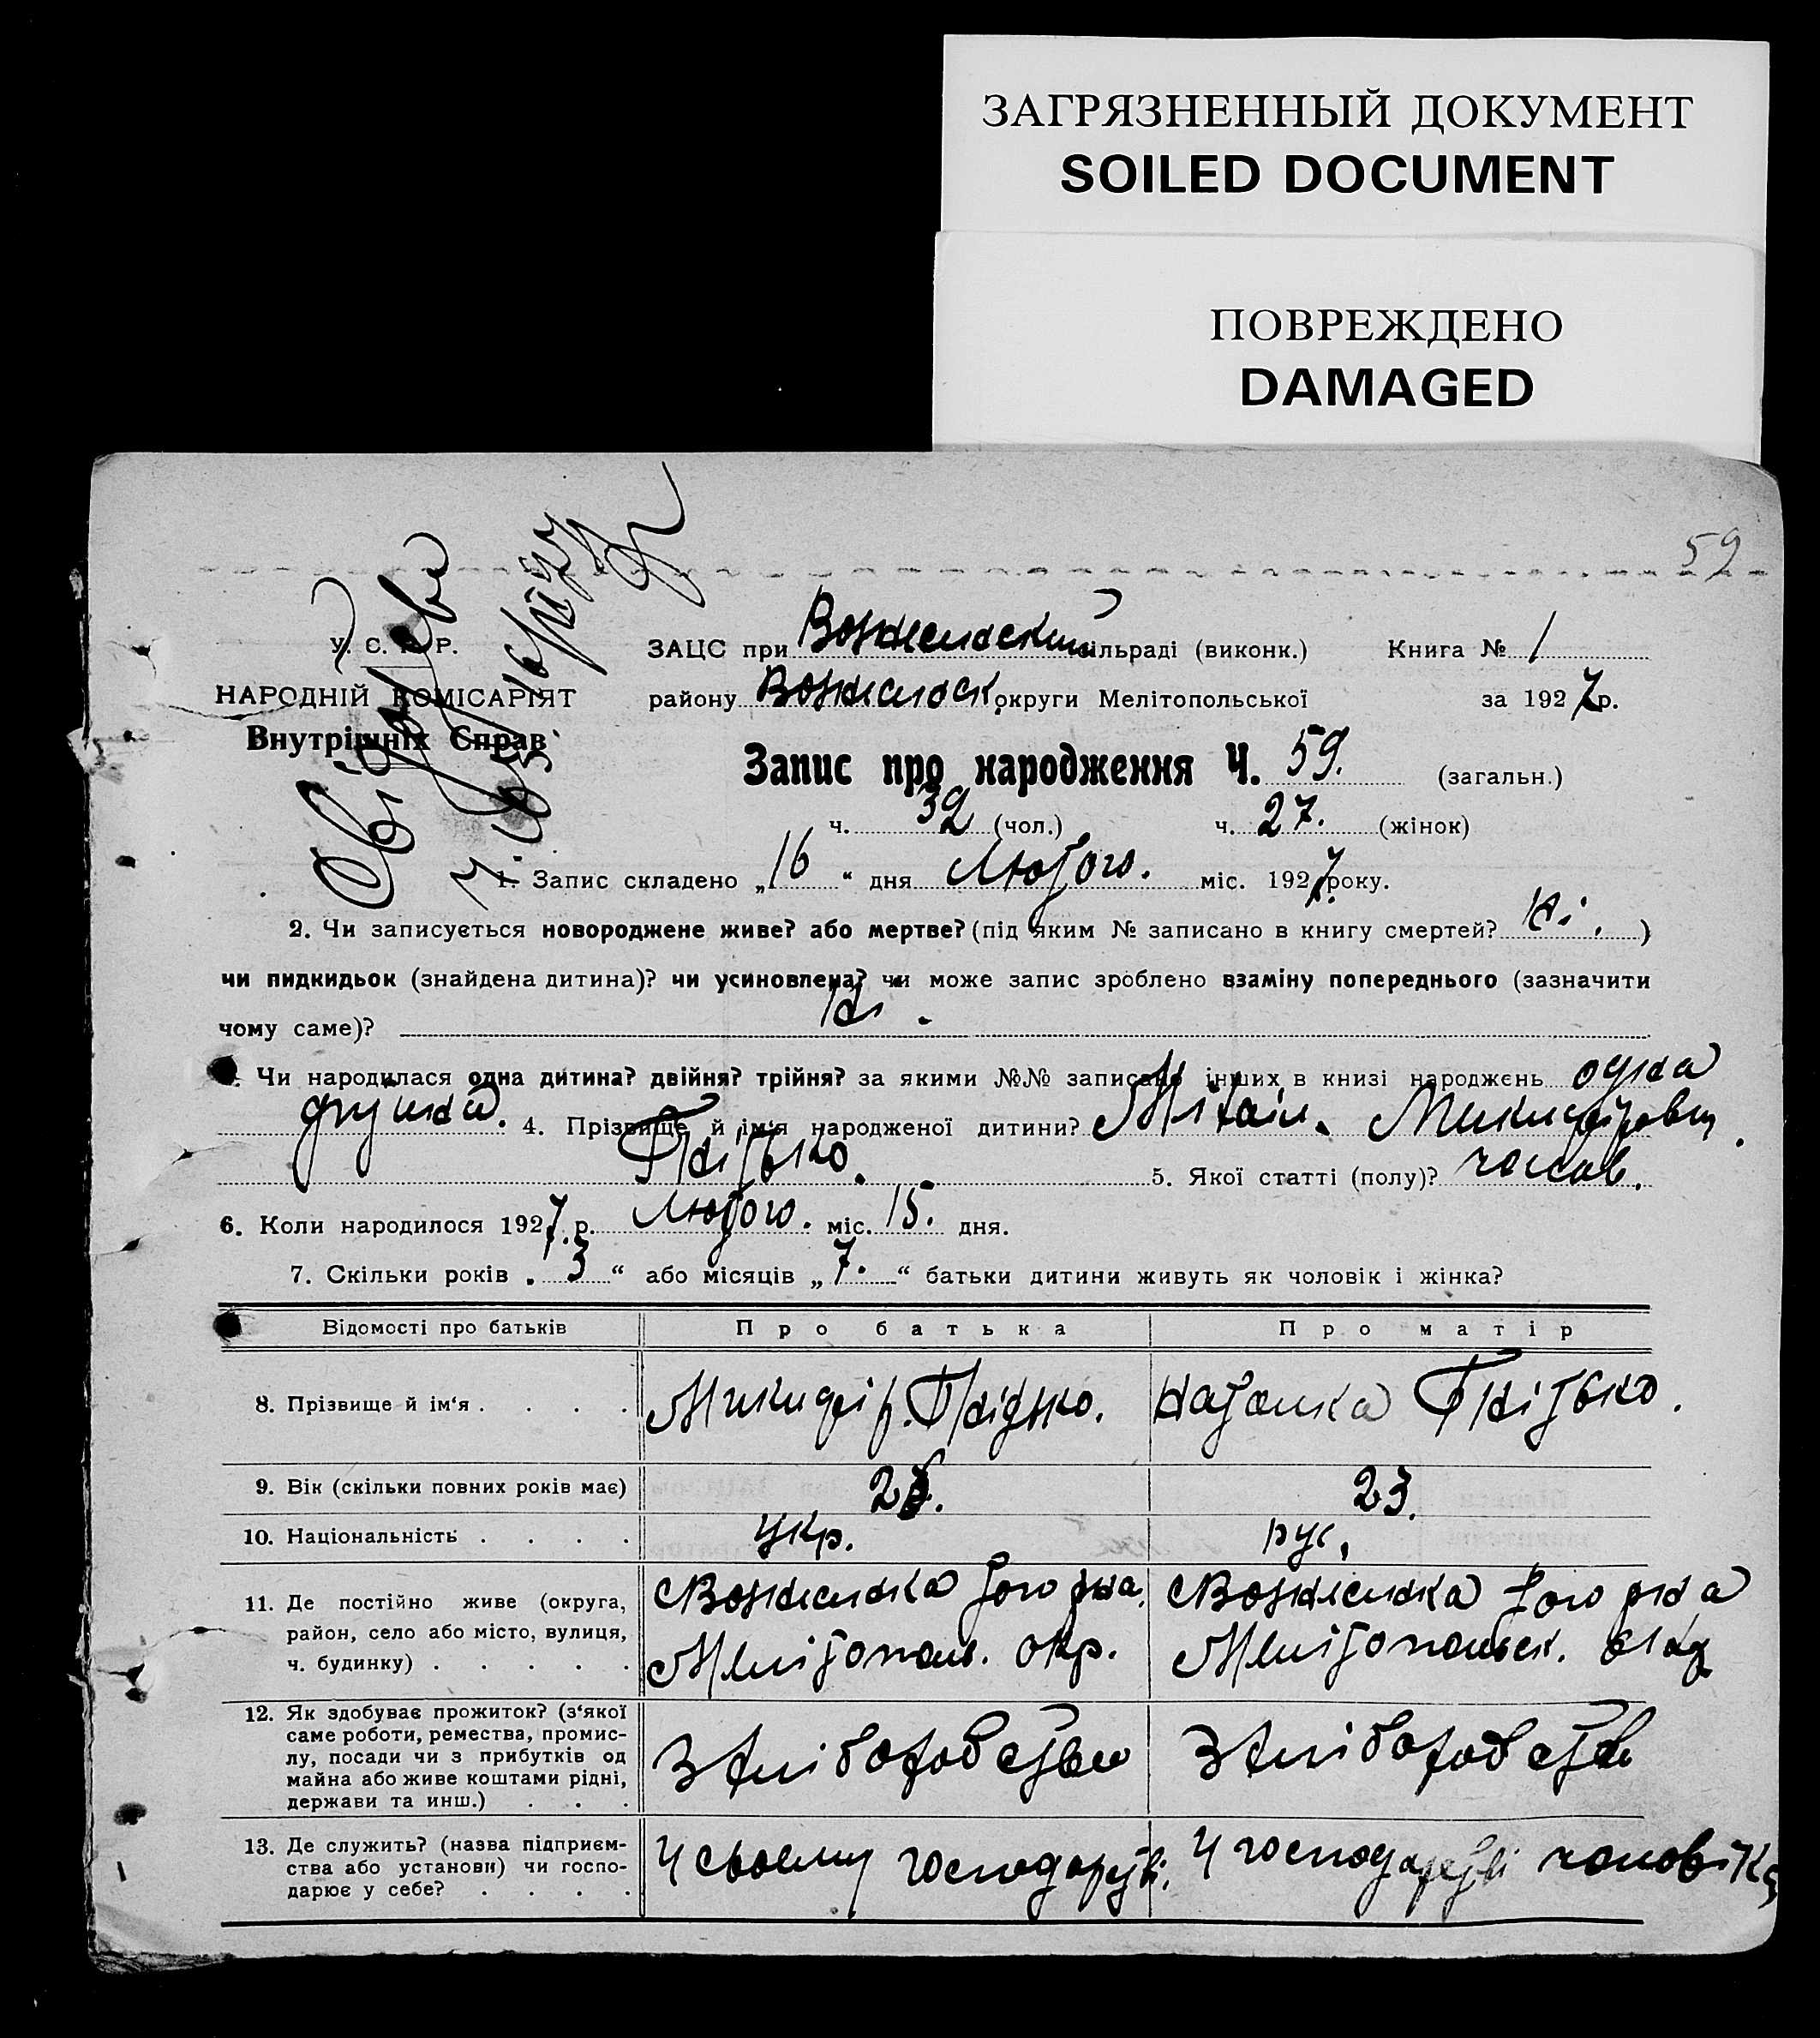 ЗАГРЯЗНЕННЫЙ ДОКУМЕНТ
SOILED DOCUMENT
ПОВРЕЖДЕНО
DAMAGED
59
У. С. Р. Р.
НАРОДНІЙ КОМІСАРІЯТ
Внутрішніх Справ
ЗАЦС при Вознесенский сільраді (виконк.) Книга № 1
району Вознесенск. округи Мелітопольської за 1927 р.
Запис про народження Ч. 59. (загальн.)
ч. 32 (чол.) ч. 27. (жінок)
1. Запис складено „16“ дня Лютого. міс. 1927 року.
2. Чи записується новороджене живе? або мертве? (під яким № записано в книгу смертей? Ні.)
чи пидкидьок (знайдена дитина)? чи усиновлена? чи може запис зроблено взаміну попереднього (зазначити
чому саме)? Ні.
Чи народилася одна дитина? двійня? трійня? за якими №№ записано інших в книзі народжень одна
4. Прізвище й ім'я народженої дитини? Міхаіл. Микифорович
Гнітько. 5. Якої статті (полу)? чолов.
6. Коли народилося 1927 р. Лютого. міс. 15. дня.
7. Скільки років „3“ або місяців „7.“ батьки дитини живуть як чоловік і жінка?
Відомості про батьків Про батька Про матір
8. Прізвище й ім'я . . . . Микифір. Гнітько. Наталка Гнітько.
9. Вік (скільки повних років має) 23.
10. Національність . . . . Укр. рус.
11. Де постійно живе (округа, район, село або місто, вулиця, ч. будинку) . . . . . Вознесенка того рна. Мелітопол. окр. Вознесенка того рна Мелітопольск.
12. Як здобуває прожиток? (з'якої саме роботи, ремества, промислу, посади чи з прибутків од майна або живе коштами рідні, держави та инш.) . . . З хліборобства З хліборобства
13. Де служить? (назва підприємства або установи) чи господарює у себе? . . . . У своєму господарстві. У господарстві чоловіка